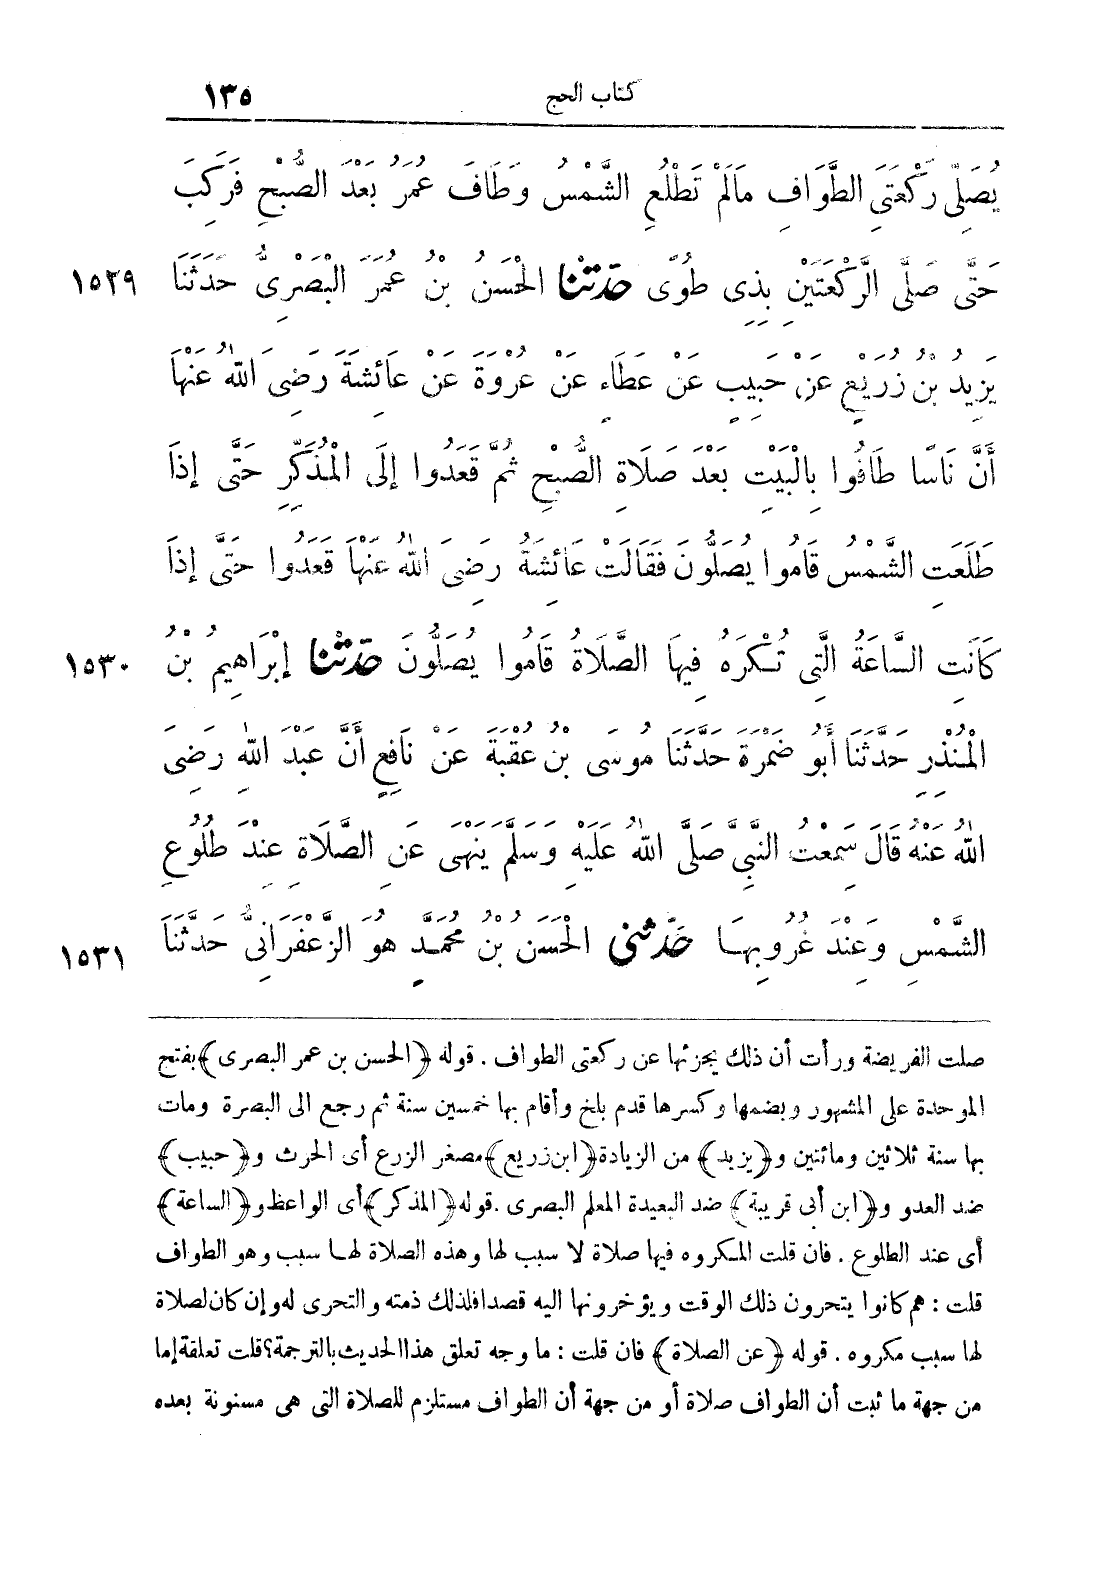 كتاب الحج ١٣٥
يُصَلِّى رَكْعَتَىِ الطَّوَافِ مَالَمْ تَطْلُعِ الشَّمْسُ وَطَافَ عُمَرُ بَعْدَ الصُّبْحِ فَرَكِبَ
حَتَّى صَلَّى الرَّكْعَتَيْنِ بِذِى طُوًى حَدَّثَنَا الْحَسَنُ بْنُ عُمَرَ الْبَصْرِىُّ حَدَّثَنَا ١٥٢٩
يَزِيدُ بْنُ زُرَيْعٍ عَنْ حَبِيبٍ عَنْ عَطَاءٍ عَنْ عُرْوَةَ عَنْ عَائِشَةَ رَضِىَ اللهُ عَنْهَا
أَنَّ نَاسًا طَافُوا بِالْبَيْتِ بَعْدَ صَلَاةِ الصُّبْحِ ثُمَّ قَعَدُوا إِلَى الْمُذَكِّرِ حَتَّى إِذَا
طَلَعَتِ الشَّمْسُ قَامُوا يُصَلُّونَ فَقَالَتْ عَائِشَةُ رَضِىَ اللهُ عَنْهَا قَعَدُوا حَتَّى إِذَا
كَانَتِ السَّاعَةُ الَّتِى تُكْرَهُ فِيهَا الصَّلَاةُ قَامُوا يُصَلُّونَ حَدَّثَنَا إِبْرَاهِيمُ بْنُ ١٥٣٠
الْمُنْذِرِ حَدَّثَنَا أَبُو ضَمْرَةَ حَدَّثَنَا مُوسَى بْنُ عُقْبَةَ عَنْ نَافِعٍ أَنَّ عَبْدَ اللهِ رَضِىَ
اللهُ عَنْهُ قَالَ سَمِعْتُ النَّبِىَّ صَلَّى اللهُ عَلَيْهِ وَسَلَّمَ يَنْهَى عَنِ الصَّلَاةِ عِنْدَ طُلُوعِ
الشَّمْسِ وَعِنْدَ غُرُوبِهَا حَدَّثَنِى الْحَسَنُ بْنُ مُحَمَّدٍ هُوَ الزَّعْفَرَانِىُّ حَدَّثَنَا ١٥٣١
صلت الفريضة ورأت أن ذلك يجزئها عن ركعتى الطواف . قوله ﴿الحسن بن عمر البصرى﴾ بفتح
الموحدة على المشهور وبضمها وكسرها قدم بلخ وأقام بها خمسين سنة ثم رجع الى البصرة ومات
بها سنة ثلاثين ومائتين و﴿يزيد﴾ من الزيادة ﴿ابن زريع﴾ مصغر الزرع أى الحرث و﴿حبيب﴾
ضد العدو و﴿ابن أبى قريبة﴾ ضد البعيدة المعلم البصرى . قوله ﴿المذكر﴾ أى الواعظ و﴿الساعة﴾
أى عند الطلوع . فان قلت المكروه فيها صلاة لا سبب لها وهذه الصلاة لها سبب وهو الطواف
قلت : هم كانوا يتحرون ذلك الوقت ويؤخرونها اليه قصدا فلذلك ذمته والتحرى له وإن كان لصلاة
لها سبب مكروه . قوله ﴿عن الصلاة﴾ فان قلت : ما وجه تعلق هذا الحديث بالترجمة؟ قلت تعلقة إما
من جهة ما ثبت أن الطواف صلاة أو من جهة أن الطواف مستلزم للصلاة التى هى مسنونة بعده